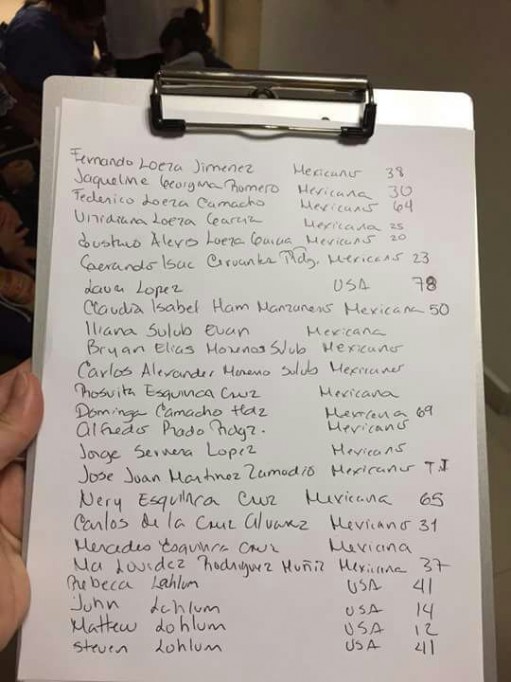 Fernando Loeza Jimenez Mexicano 38
Jaqueline Georgina Romero Mexicana 30
Federico Loeza Camacho Mexicano 64
Viridiana Loeza Garcia Mexicana 25
Gustavo Alexis Loeza Garcia Mexicano 20
Gerardo Isac Cervantes Rdg. Mexicano 23
Laura Lopez USA 78
Claudia Isabel Ham Manzanero Mexicana 50
Iliana Sulub Euan Mexicana
Bryan Elias Moreno Sulub Mexicano
Carlos Alexander Moreno Sulub Mexicano
Rosvita Esquinca Cruz Mexicana
Dominga Camacho Hdz Mexicana 69
Alfredo Prado Rdgz. Mexicano
Jorge Servera Lopez Mexicano
Jose Juan Martinez Zamudio Mexicano T.J
Nery Esquinca Cruz Mexicana 65
Carlos de la Cruz Alvarez Mexicano 31
Mercedes Esquinca Cruz Mexicana
Ma Lourdez Rodriguez Muñiz Mexicana 37
Rebeca Lohlum USA 41
John Lohlum USA 14
Mattew Lohlum USA 12
Steven Lohlum USA 41